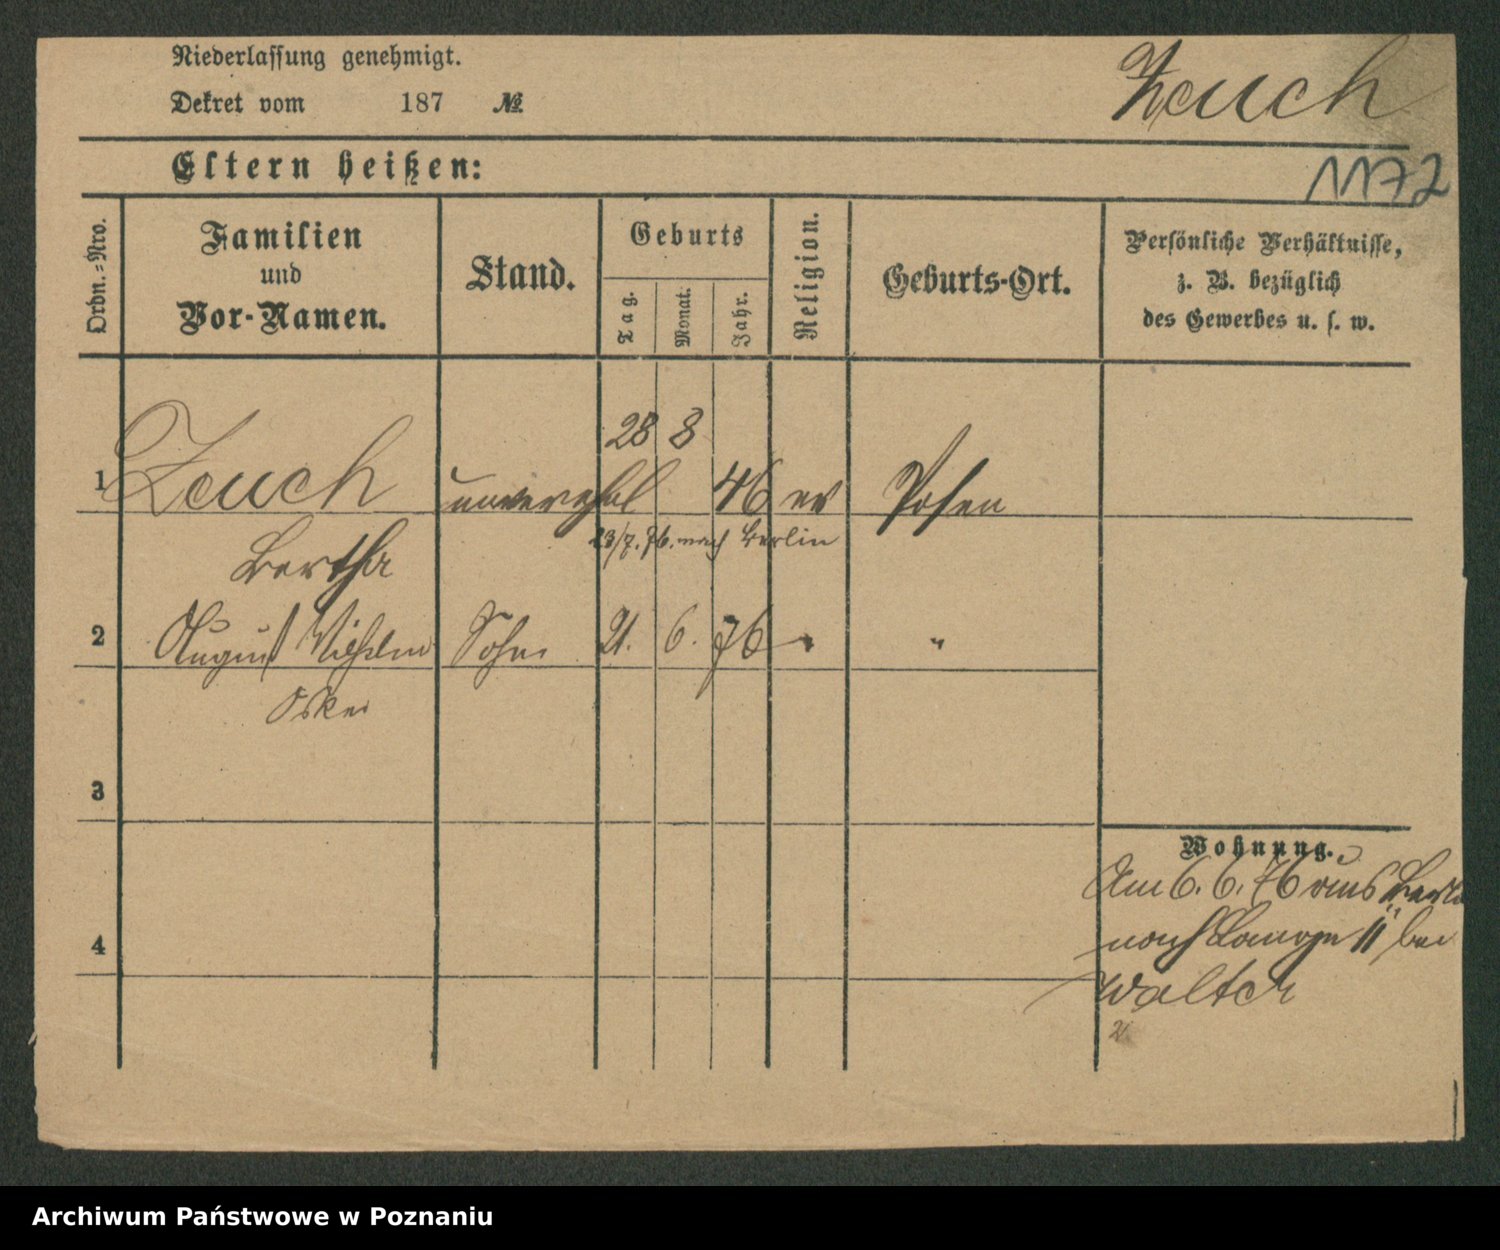 Niederlassung genehmigt.
Dekret vom 187 №
Zeuch
Eltern heißen:
1172
Ordn.=Nro.
Familien
und
Vor-Namen.
Stand.
Geburts
Tag.
Monat.
Jahr.
Religion.
Geburts-Ort.
Persönliche Verhältnisse,
z. B. bezüglich
des Gewerbes u. s. w.
28 8
1 Zeuch unverehel 46 ev Posen
23/7. 76. nach Berlin
Bertha
2 August Wilhelm Sohn 21. 6. 76 " "
Oskar
3
Wohnung.
Am 6. 6. 76 aus Berlin
4
nach 11 bei
Walter